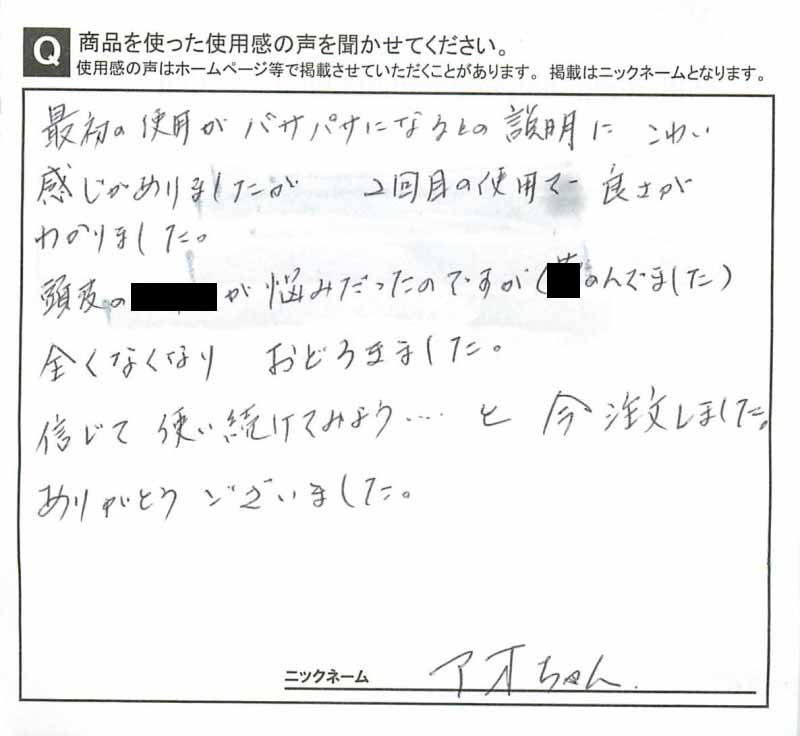 Q 商品を使った使用感の声を聞かせてください。
使用感の声はホームページ等で掲載させていただくことがあります。掲載はニックネームとなります。
最初の使用が バサバサになるとの 説明に こわい
感じがありましたが 2回目の使用で 良さが
わかりました。
頭皮の が 悩みだったのですが( のんでました)
全くなくなり おどろきました。
信じて 使い続けてみよう‥‥ と 今 注文しました。
ありがとう ございました。
ニックネーム アオちゃん